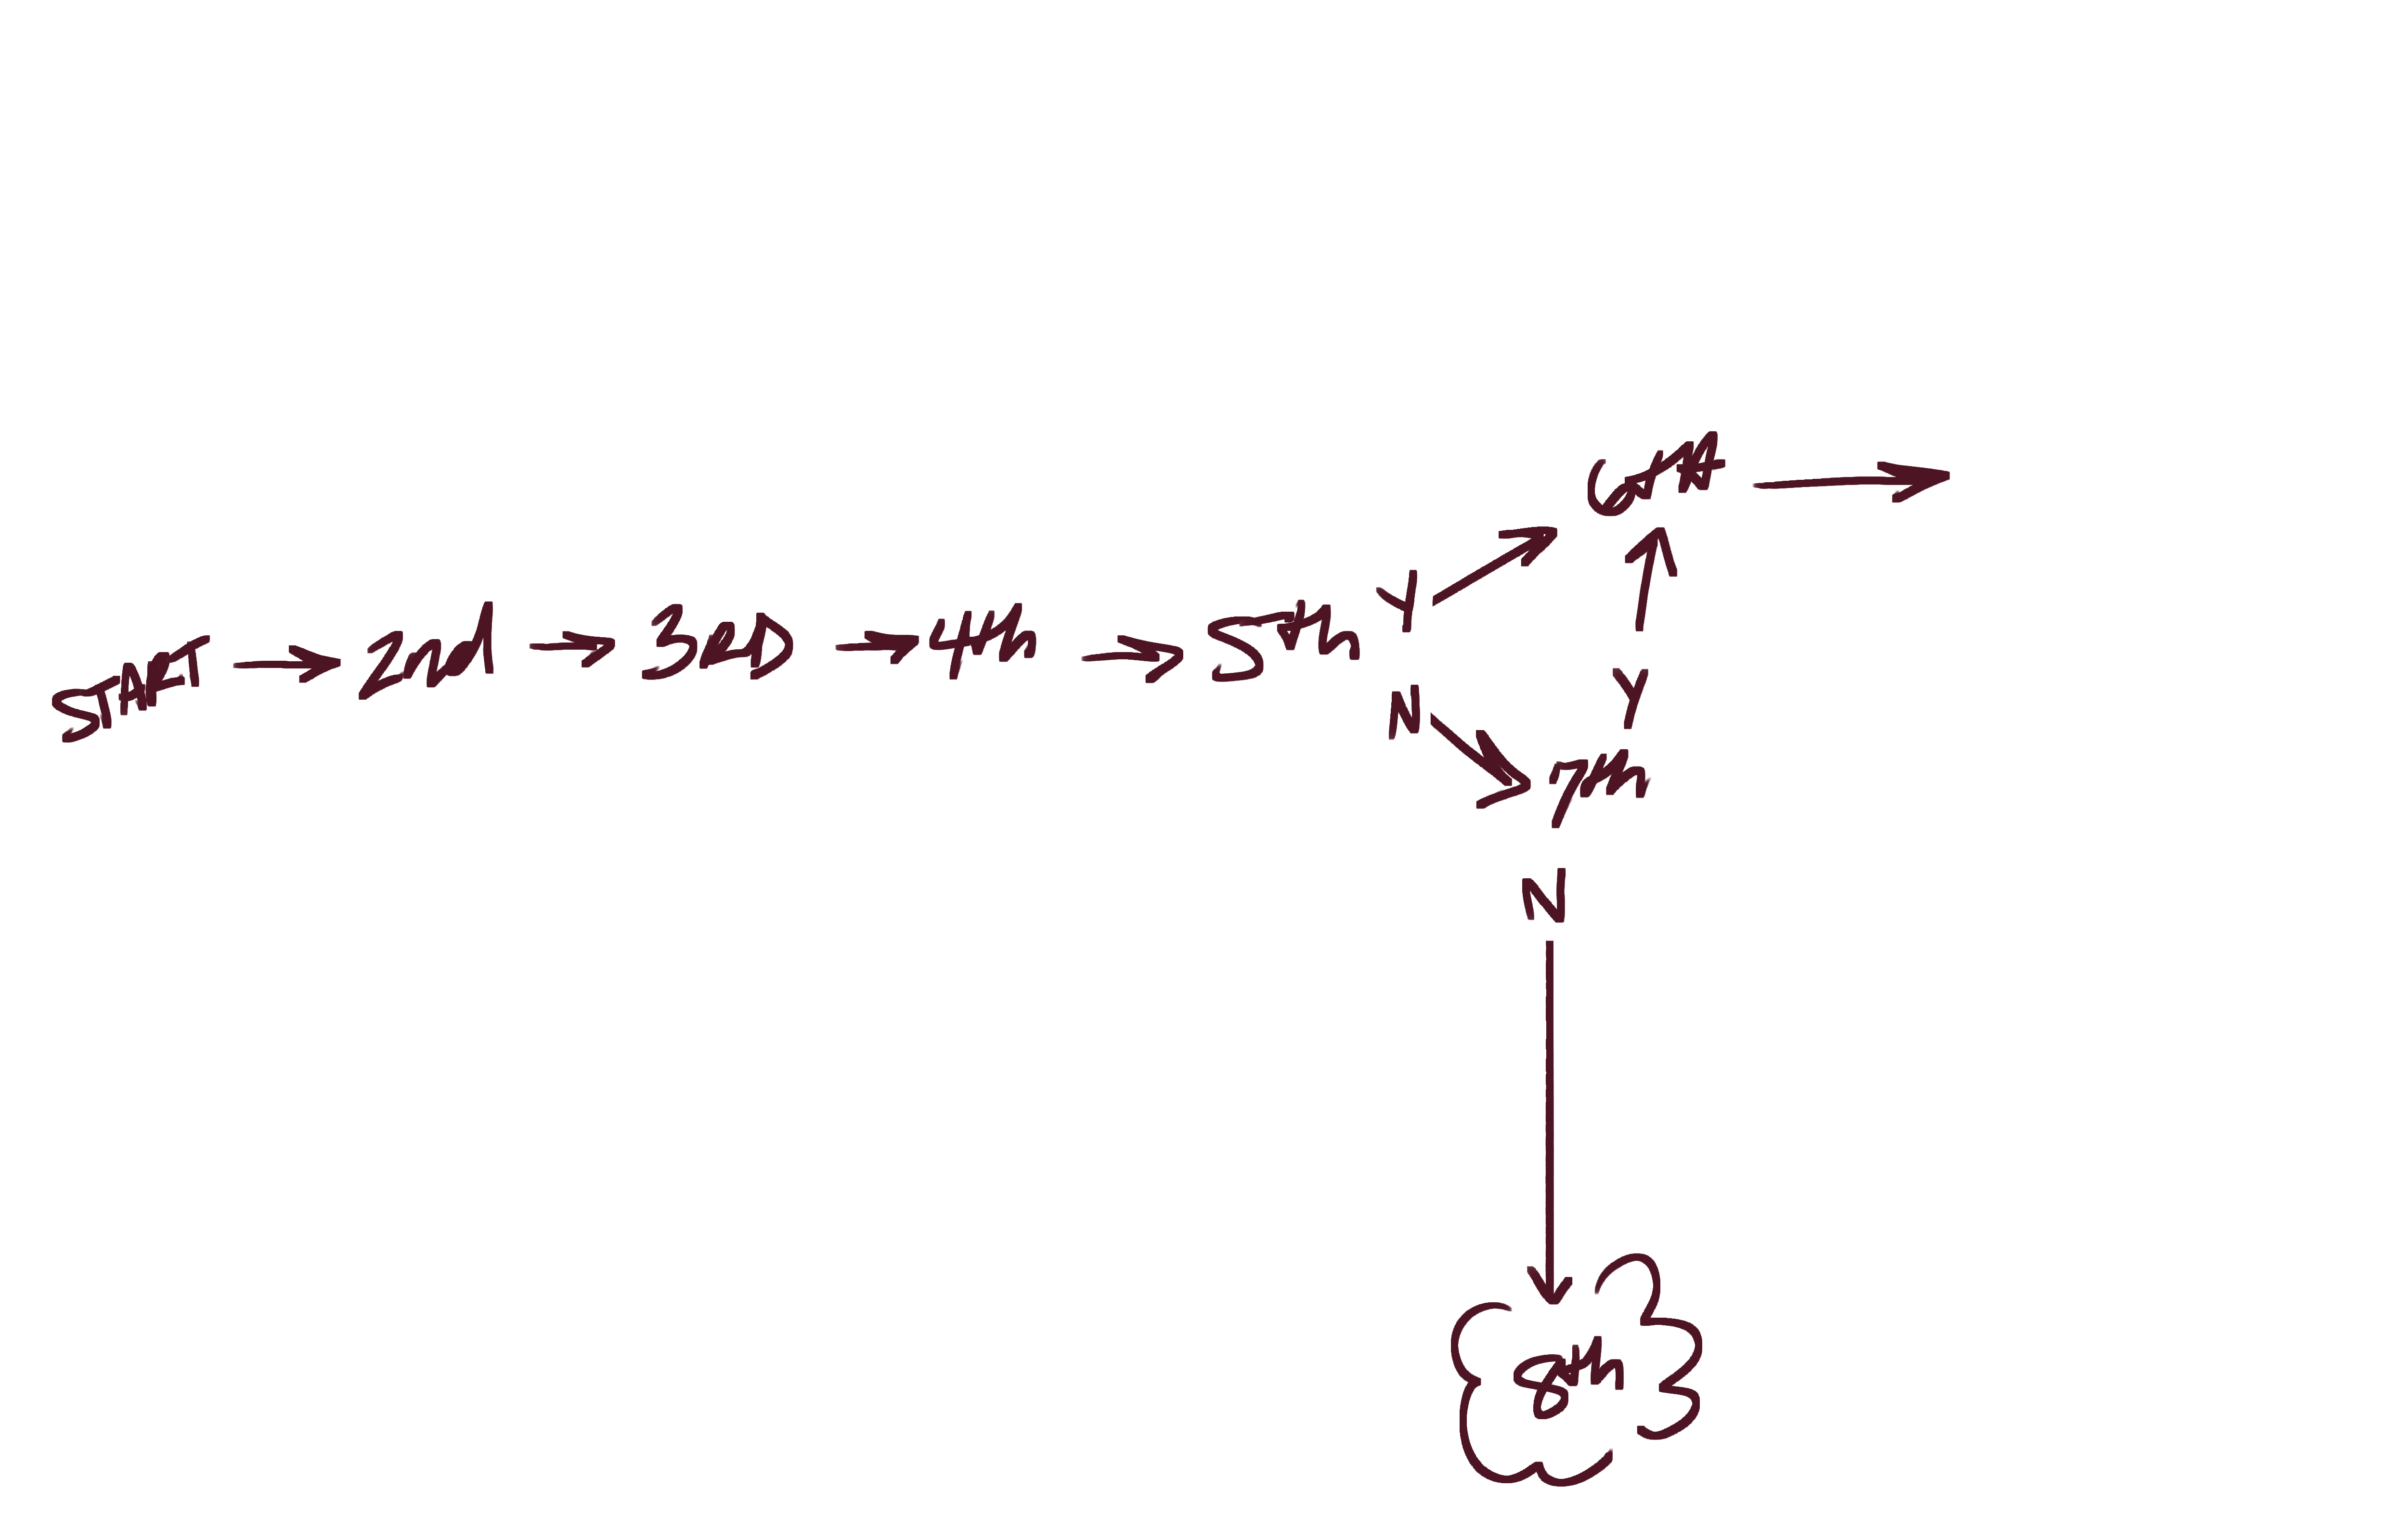 START → 2nd → 3RD → 4th → 5th
Y
6TH →
N
7th
Y
N
8th